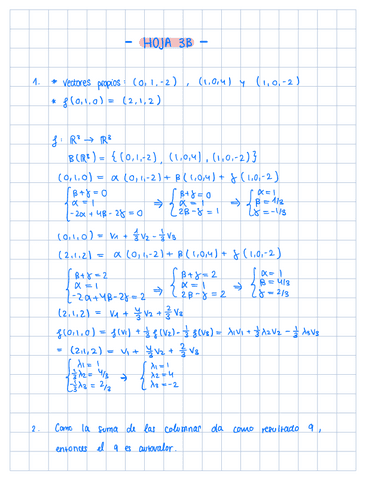 - HOJA 3B -
1. * Vectores propios: (0,1,-2), (1,0,4) y (1,0,-2)
* f(0,1,0) = (2,1,2)
f: ℝ³ → ℝ³
B(ℝ³) = {(0,1,-2), (1,0,4), (1,0,-2)}
(0,1,0) = α(0,1,-2) + β(1,0,4) + γ(1,0,-2)
{β+γ=0 ⇒ {β+γ=0 ⇒ {α=1
α=1 α=1 β=1/3
-2α+4β-2γ=0 2β-γ=1 γ=-1/3
(0,1,0) = v1 + 1/3 v2 - 1/3 v3
(2,1,2) = α(0,1,-2) + β(1,0,4) + γ(1,0,-2)
{β+γ=2 ⇒ {β+γ=2 ⇒ {α=1
α=1 α=1 β=4/3
-2α+4β-2γ=2 2β-γ=2 γ=2/3
(2,1,2) = v1 + 4/3 v2 + 2/3 v3
f(0,1,0) = f(v1) + 1/3 f(v2) - 1/3 f(v3) = λ1v1 + 1/3 λ2v2 - 1/3 λ3v3
= (2,1,2) = v1 + 4/3 v2 + 2/3 v3
{λ1=1 → {λ1=1
1/3 λ2=4/3 λ2=4
-1/3 λ3=2/3 λ3=-2
2. Como la suma de las columnas da como resultado 9,
entonces el 9 es autovalor.